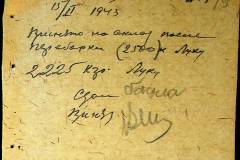 15/II 1943
Принято на склад после
переборки (2500) к Луку
2225 кгр. Луку
Сдал
Принял